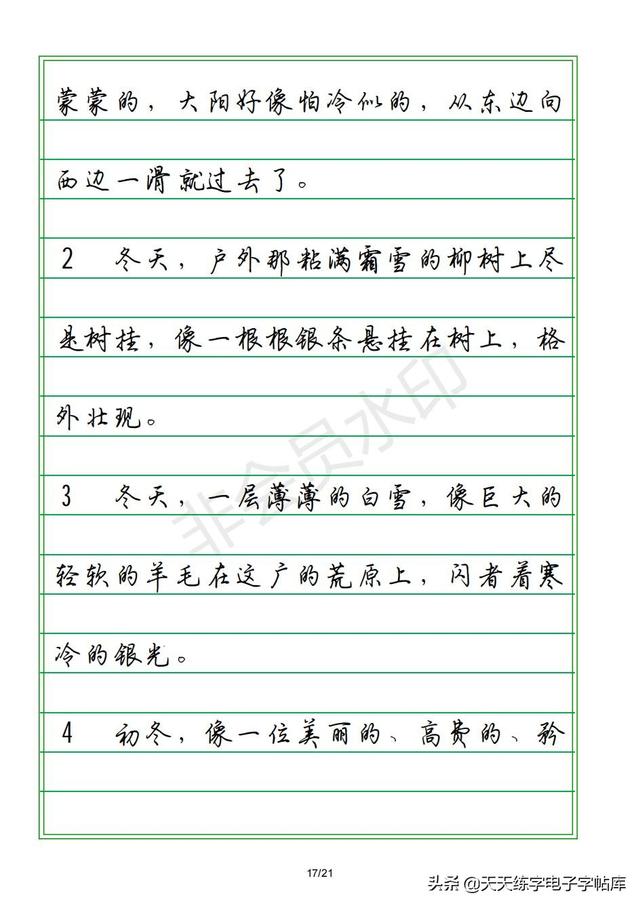 蒙蒙的，大阳好像怕冷似的，从东边向
西边一滑就过去了。
2 冬天，户外那粘满霜雪的柳树上尽
是树挂，像一根根银条悬挂在树上，格
外壮现。
3 冬天，一层薄薄的白雪，像巨大的
轻软的羊毛在这广的荒原上，闪者着寒
冷的银光。
4 初冬，像一位美丽的、高贵的、矜
非会员水印
17/21
头条 @天天练字电子字帖库